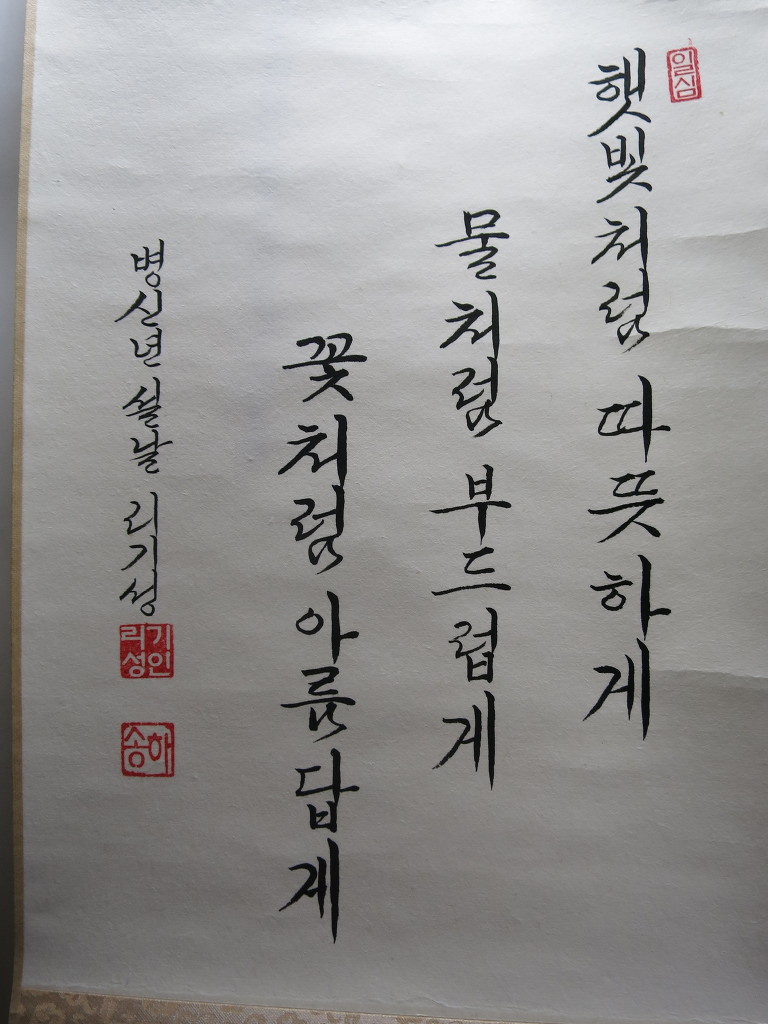 일심
햇빛처럼 따뜻하게
물처럼 부드럽게
꽃처럼 아름답게
병신년 설날 리기성
리기성인
송하